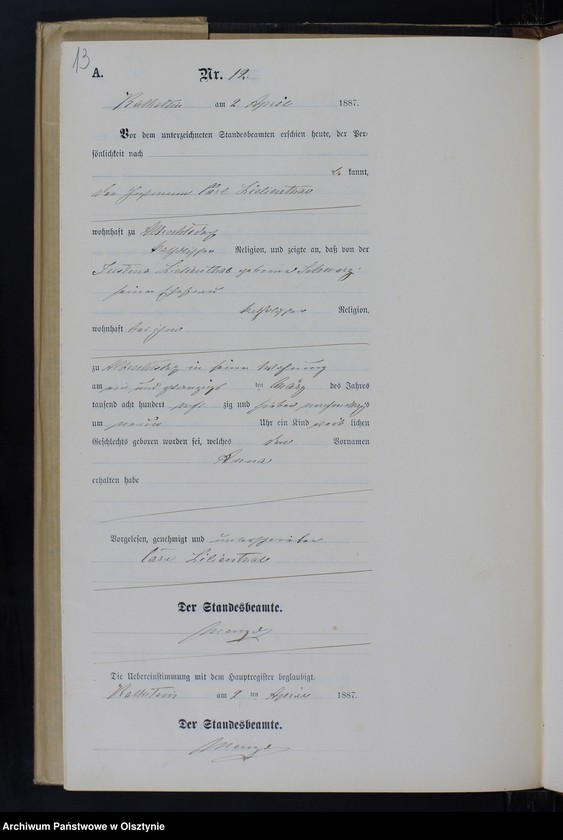 13
A. Nr. 12.
Kallstein am 2 April 1887.
Vor dem unterzeichneten Standesbeamten erschien heute, der Per-
sönlichkeit nach
be kannt,
der Carl Lilienthal
wohnhaft zu Albrechtsdorf
katholischer Religion, und zeigte an, daß von der
Justina Lilienthal geborene Schwarz
seiner Ehefrau
katholischer Religion,
wohnhaft bei ihm
zu Albrechtsdorf in seiner Wohnung
am ein und zwanzigsten ten März des Jahres
tausend acht hundert acht zig und sieben
um neun Uhr ein Kind weib lichen
Geschlechts geboren worden sei, welches den Vornamen
Anna
erhalten habe
Vorgelesen, genehmigt und unterschrieben
Carl Lilienthal
Der Standesbeamte.
Die Uebereinstimmung mit dem Hauptregister beglaubigt.
Kallstein am 2 ten April 1887.
Der Standesbeamte.
Archiwum Państwowe w Olsztynie